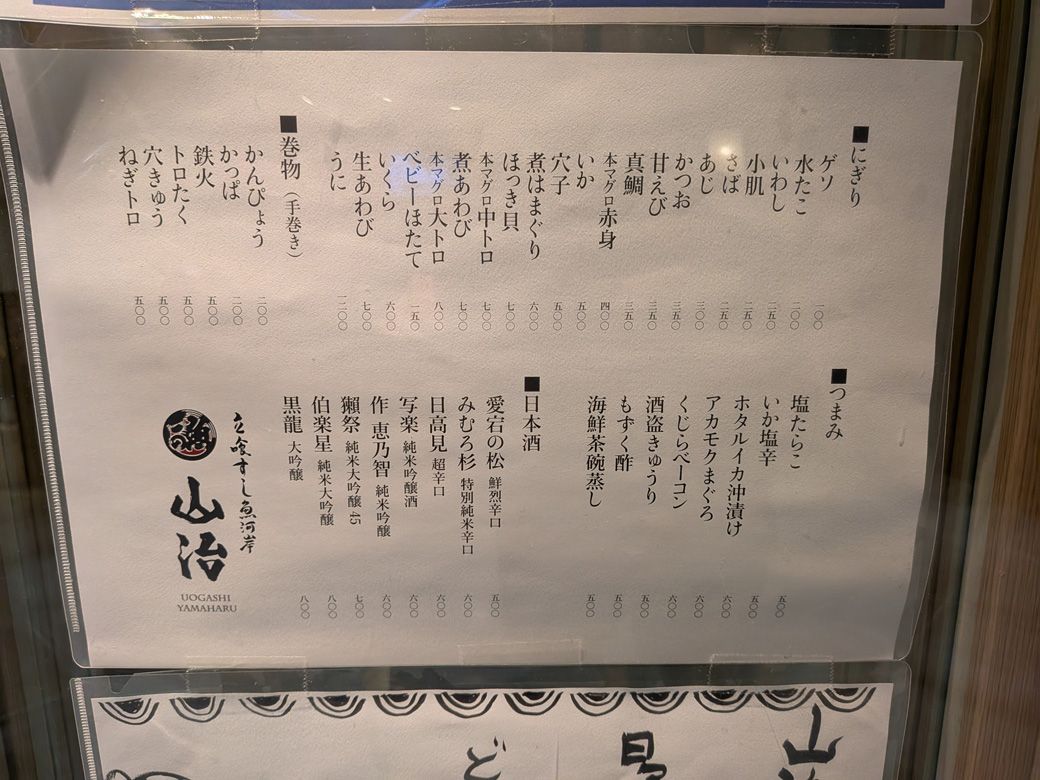 ■にぎり
ゲソ 一〇〇
水たこ 二〇〇
いわし 二五〇
小肌 二五〇
さば 二五〇
あじ 三〇〇
かつお 三五〇
甘えび 三五〇
真鯛 三五〇
本マグロ赤身 四〇〇
いか 五〇〇
穴子 五〇〇
煮はまぐり 六〇〇
ほっき貝 七〇〇
本マグロ中トロ 七〇〇
煮あわび 七〇〇
本マグロ大トロ 八〇〇
ベビーほたて 一五〇
いくら 六〇〇
生あわび 七〇〇
うに 一二〇〇
■巻物（手巻き）
かんぴょう 二〇〇
かっぱ 二〇〇
鉄火 五〇〇
トロたく 五〇〇
穴きゅう 五〇〇
ねぎトロ 五〇〇
■つまみ
塩たらこ 五〇〇
いか塩辛 五〇〇
ホタルイカ沖漬け 六〇〇
アカモクまぐろ 六〇〇
くじらベーコン 六〇〇
酒盗きゅうり 五〇〇
もずく酢 五〇〇
海鮮茶碗蒸し 五〇〇
■日本酒
愛宕の松 鮮烈辛口 五〇〇
みむろ杉 特別純米辛口 六〇〇
日高見 超辛口 六〇〇
写楽 純米吟醸酒 六〇〇
作 恵乃智 純米吟醸 六〇〇
獺祭 純米大吟醸 45 七〇〇
伯楽星 純米大吟醸 八〇〇
黒龍 大吟醸 八〇〇
立喰すし魚河岸
山治
UOGASHI
YAMAHARU
山
ど